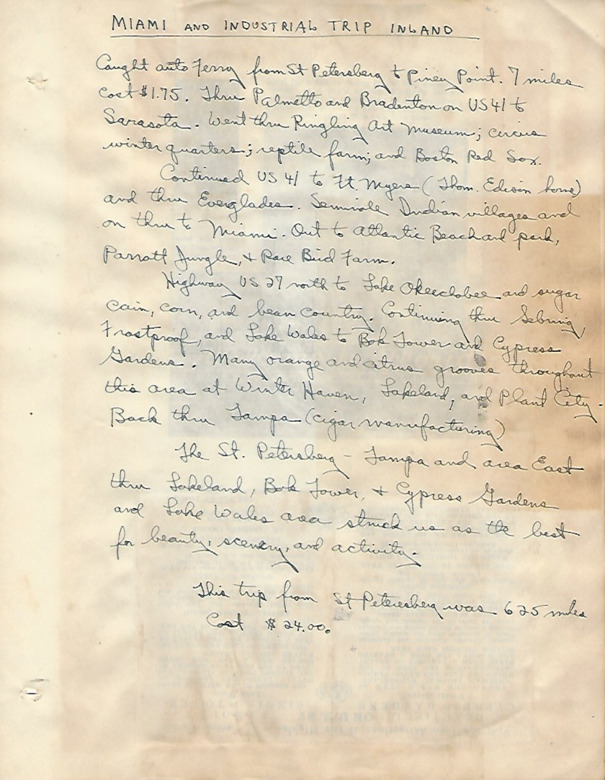 MIAMI AND INDUSTRIAL TRIP INLAND
Caught auto Ferry from St Petersberg to Piney Point. 7 miles
cost $1.75. Thru Palmetto and Bradenton on US 41 to
Sarasota. Went thru Ringling Art Museum; circus
winter quarters; reptile farm; and Boston Red Sox.
Continued US 41 to Ft. Myers (Thom. Edison home)
and thru Everglades. Seminole Indian villages and
on thru to Miami. Out to Atlantic Beach and park,
Parrott Jungle, & Rare Bird Farm.
Highway US 27 north to Lake Okeechobee and sugar
cain, corn, and bean country. Continuing thru Sebring,
Frostproof, and Lake Wales to Bok Tower and Cypress
Gardens. Many orange and citrus grooves throughout
this area at Winter Haven, Lakeland, and Plant City.
Back thru Tampa (cigar manufacturing)
The St. Petersberg - Tampa and area East
thru Lakeland, Bok Tower, & Cypress Gardens
and Lake Wales area struck us as the best
for beauty, scenery, and activity.
This trip from St Petersberg was 625 miles
Cost $24.00.